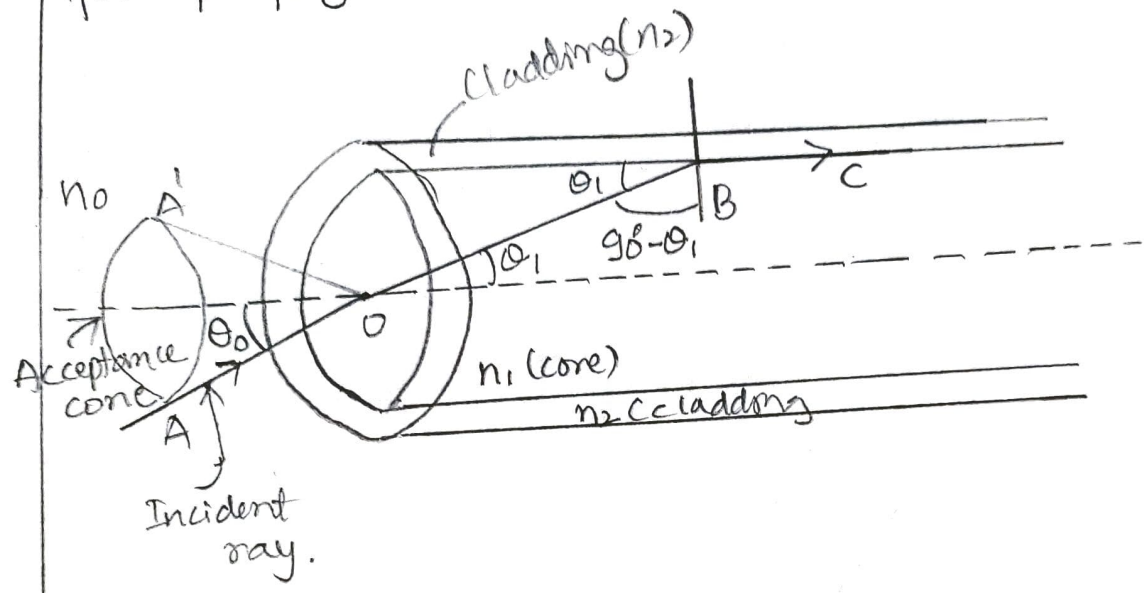 Cladding(n2)
n0
A'
θ1
B
C
90°-θ1
θ1
θ0
O
Acceptance
cone
A
n1 (core)
n2 Ccladding
Incident
ray.